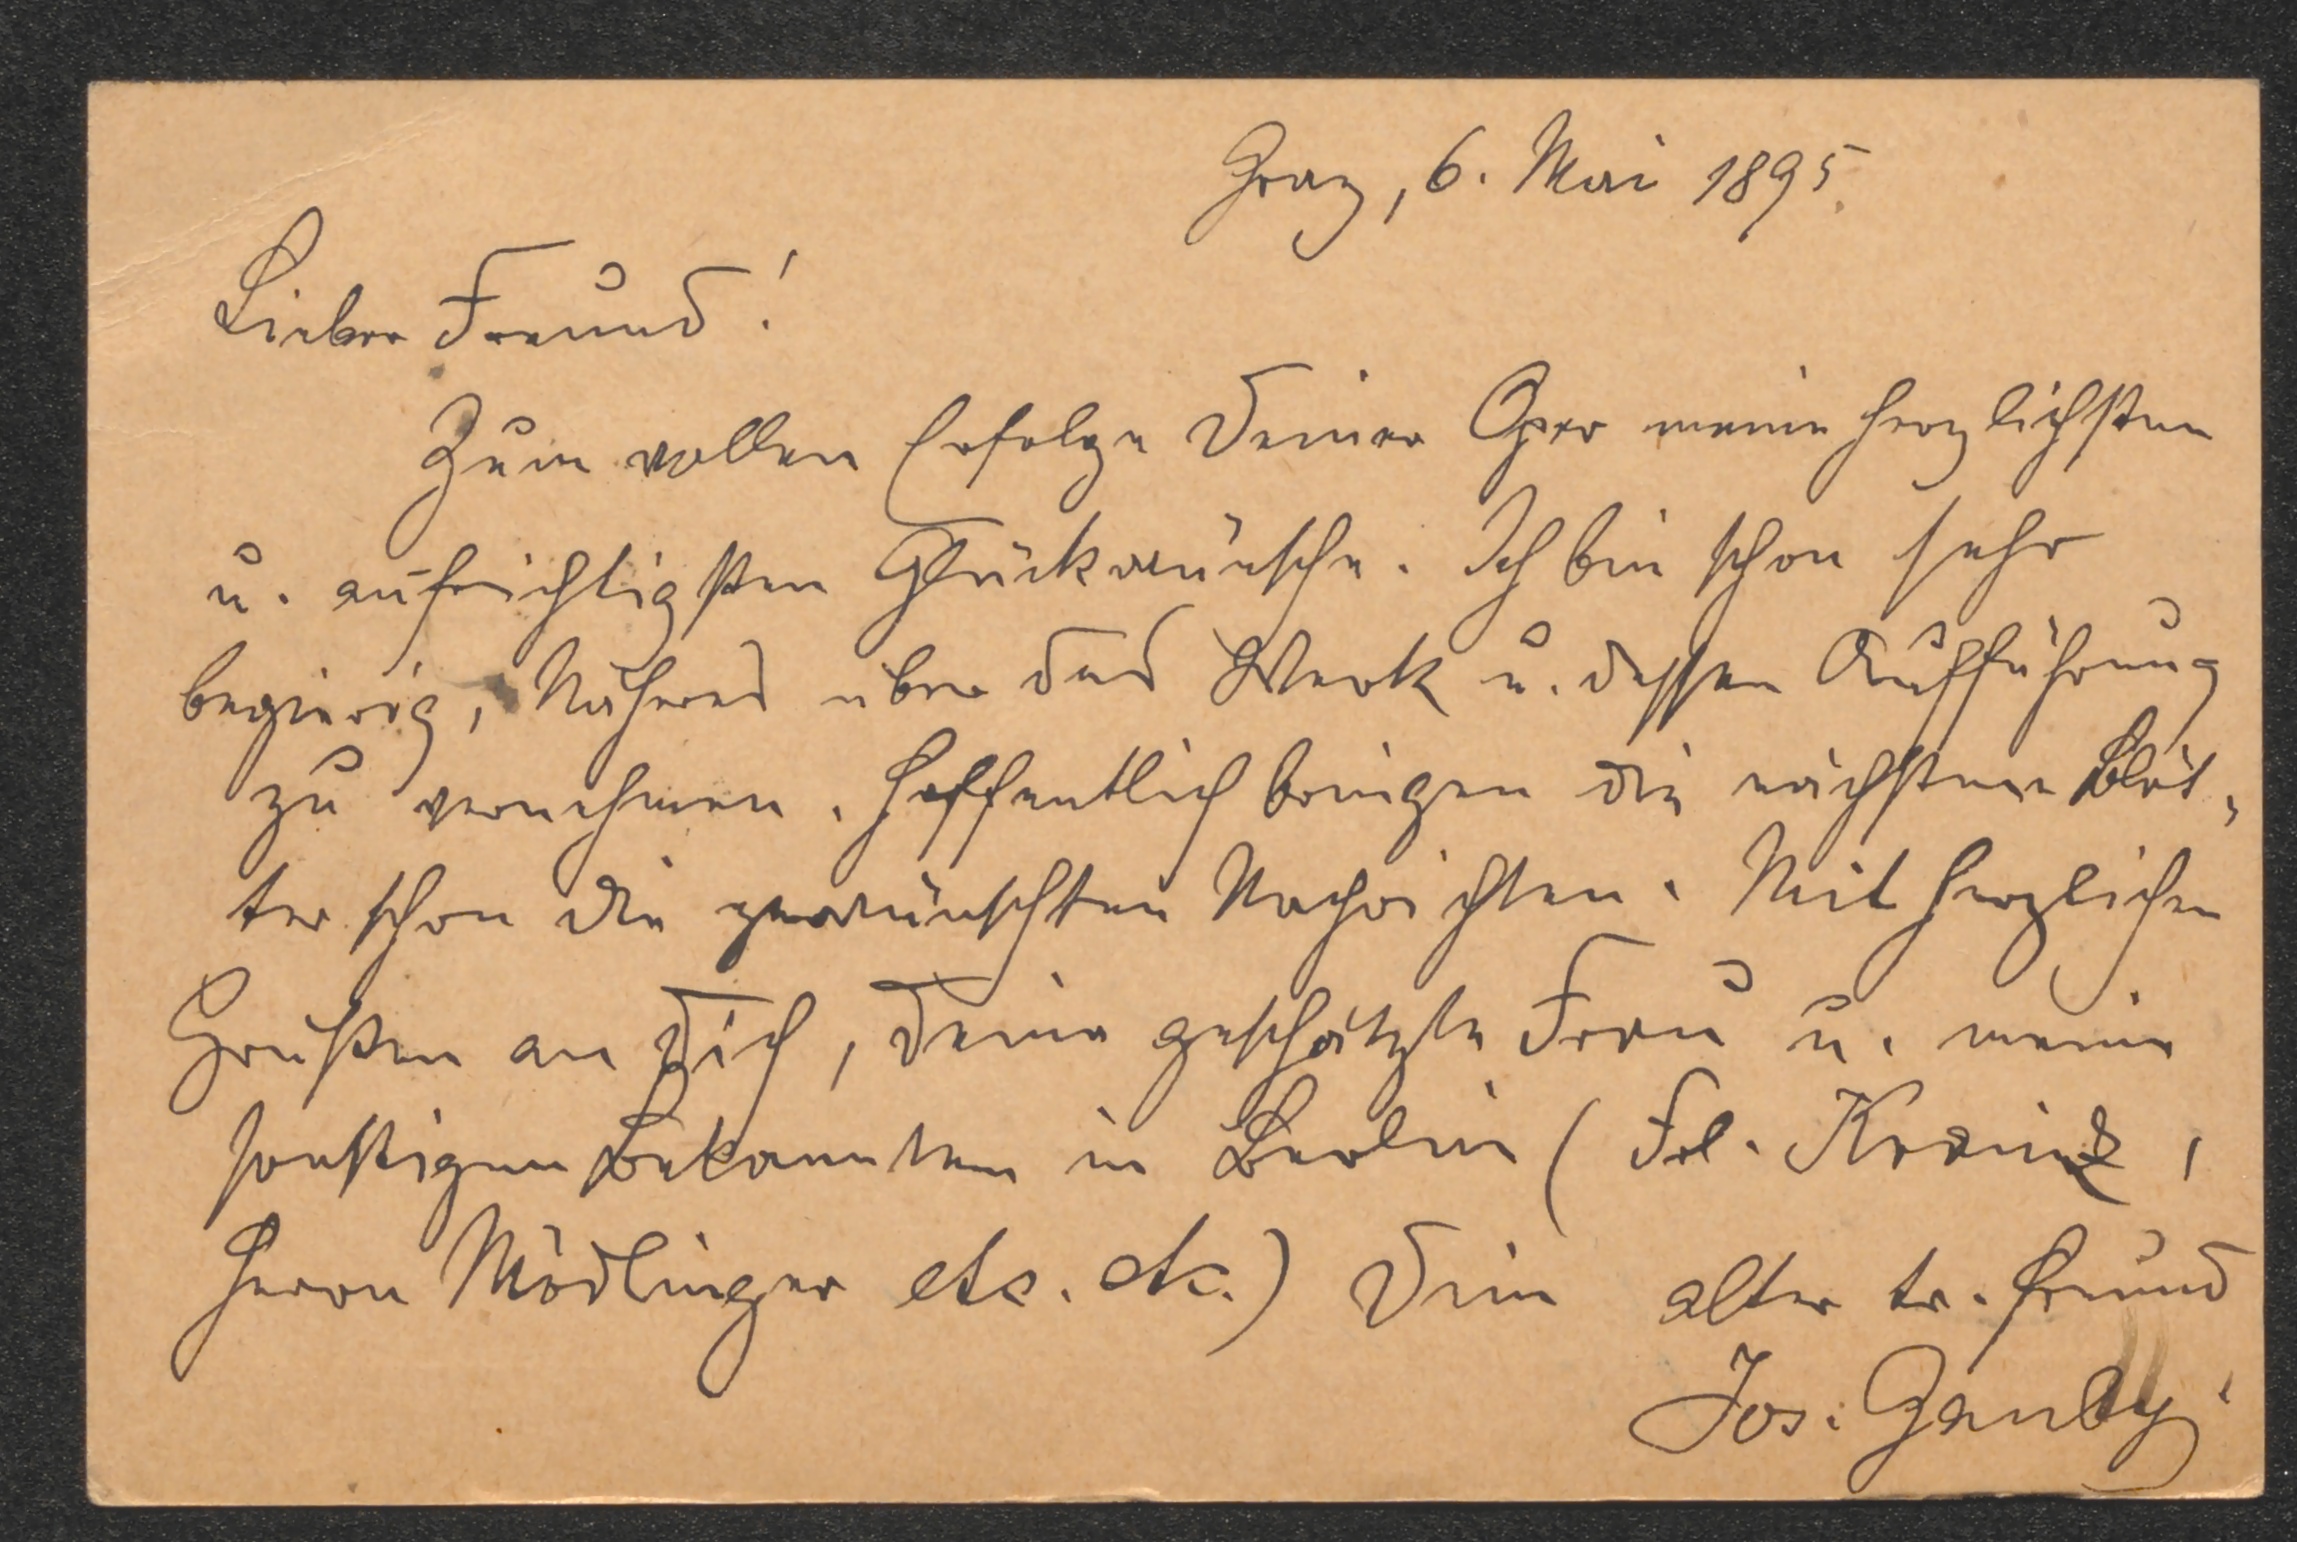 Graz, 6. Mai 1895.
Lieber Freund!
Zum vollen Erfolge Deiner Oper meine herzlichsten
u. aufrichtigsten Glückwünsche. Ich bin schon sehr
begierig, Näheres über das Werk u. dessen Aufführung
zu vernehmen. Hoffentlich bringen die nächsten Blät-
ter schon die gewünschten Nachrichten. Mit herzlichen
Grüßen an Dich, Deine geschätzte Frau u. meine
sonstigen Bekannten in Berlin (Frl.
Herrn Mödlinger etc. etc.) Dein alter tr. Freund
Jos. Gauby